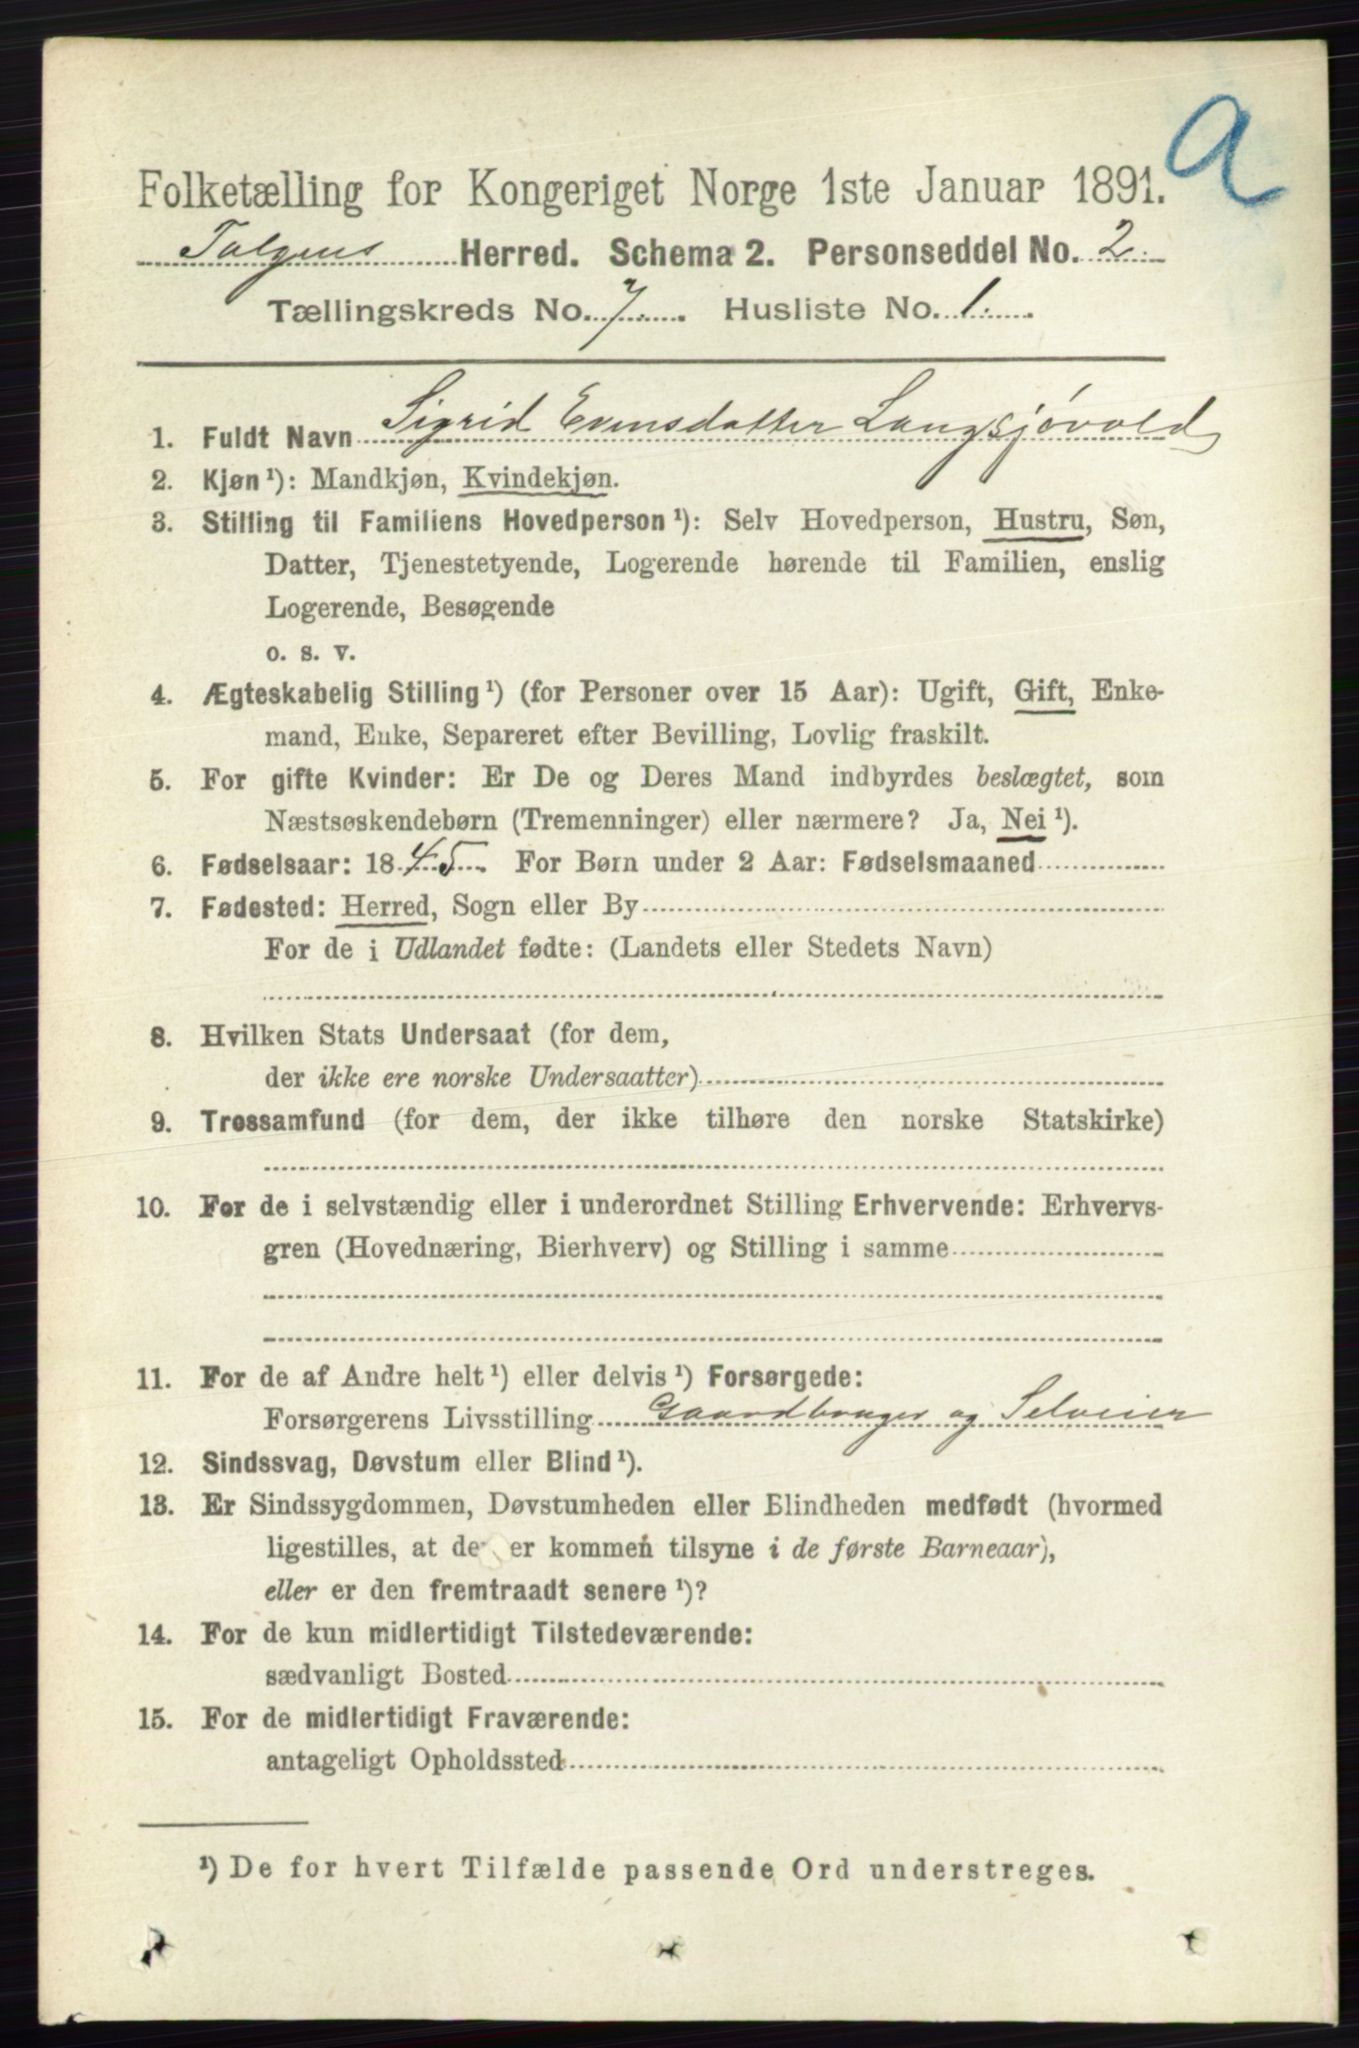 a
Folketælling for Kongeriget Norge 1ste Januar 1891.
Tolgens Herred. Schema 2. Personseddel No. 2.
Tællingskreds No. 7. Husliste No. 1.
1. Fuldt Navn Sigrid Evensdatter Langsjøvold
2. Kjøn ¹): Mandkjøn, Kvindekjøn.
3. Stilling til Familiens Hovedperson ¹): Selv Hovedperson, Hustru, Søn,
Datter, Tjenestetyende, Logerende hørende til Familien, enslig
Logerende, Besøgende
o. s. v.
4. Ægteskabelig Stilling ¹) (for Personer over 15 Aar): Ugift, Gift, Enke-
mand, Enke, Separeret efter Bevilling, Lovlig fraskilt.
5. For gifte Kvinder: Er De og Deres Mand indbyrdes beslægtet, som
Næstsøskendebørn (Tremenninger) eller nærmere? Ja, Nei ¹).
6. Fødselsaar: 1845. For Børn under 2 Aar: Fødselsmaaned
7. Fødested: Herred, Sogn eller By
For de i Udlandet fødte: (Landets eller Stedets Navn)
8. Hvilken Stats Undersaat (for dem,
der ikke ere norske Undersaatter)
9. Trossamfund (for dem, der ikke tilhøre den norske Statskirke)
10. For de i selvstændig eller i underordnet Stilling Erhvervende: Erhvervs-
gren (Hovednæring, Bierhverv) og Stilling i samme
11. For de af Andre helt ¹) eller delvis ¹) Forsørgede:
Forsørgerens Livsstilling Gaardbruger og Selveier
12. Sindssvag, Døvstum eller Blind ¹).
13. Er Sindssygdommen, Døvstumheden eller Blindheden medfødt (hvormed
ligestilles, at den er kommen tilsyne i de første Barneaar),
eller er den fremtraadt senere ¹)?
14. For de kun midlertidigt Tilstedeværende:
sædvanligt Bosted
15. For de midlertidigt Fraværende:
antageligt Opholdssted
¹) De for hvert Tilfælde passende Ord understreges.